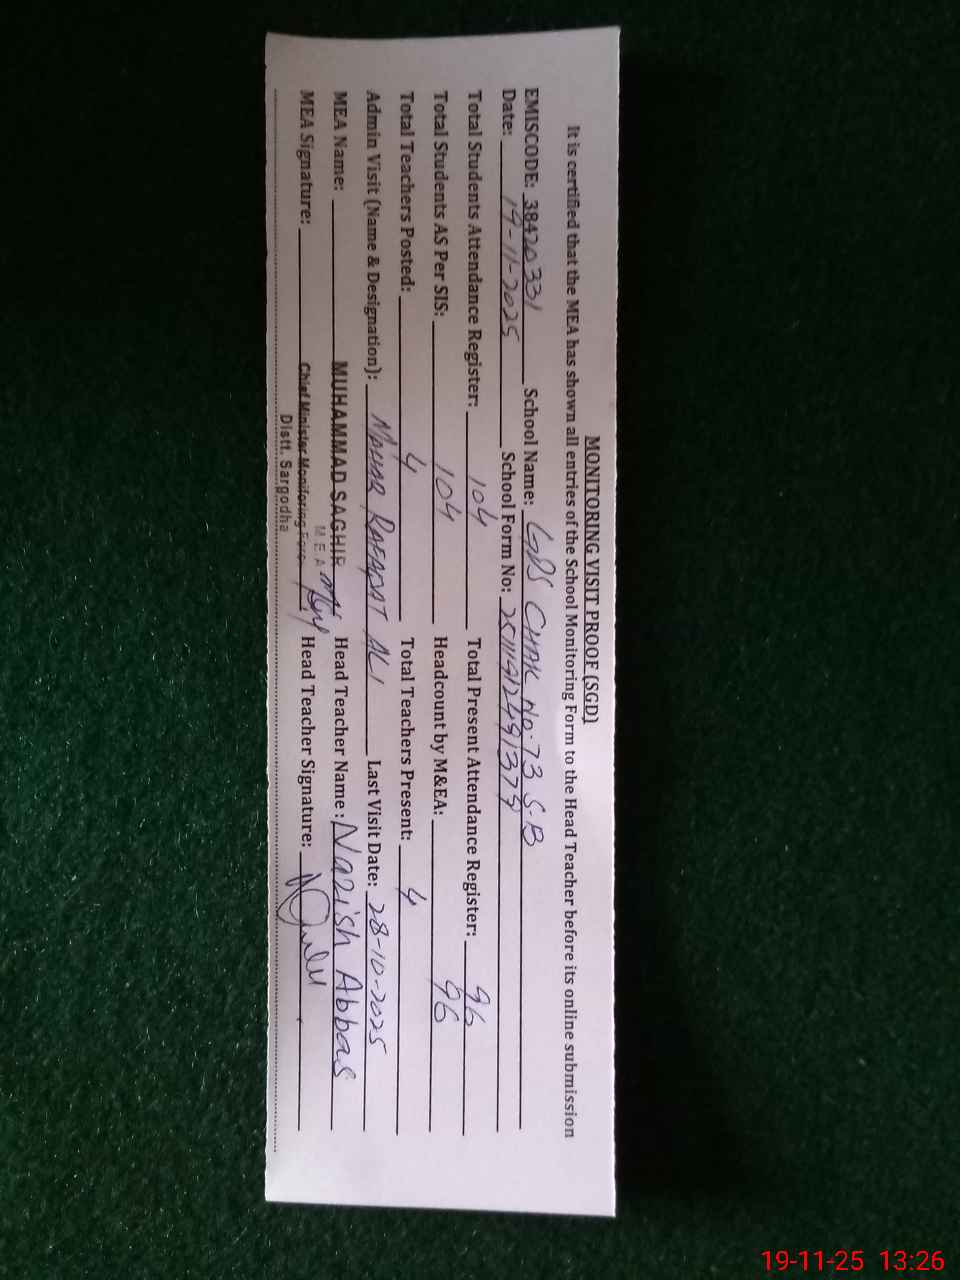 MONITORING VISIT PROOF (SGD)
It is certified that the MEA has shown all entries of the School Monitoring Form to the Head Teacher before its online submission
EMISCODE: 38420331 School Name: GPS CHAK No. 73 S-B
Date: 19-11-2025 School Form No:
Total Students Attendance Register: 104 Total Present Attendance Register: 96
Total Students AS Per SIS: 104 Headcount by M&EA: 96
Total Teachers Posted: 4 Total Teachers Present: 4
Admin Visit (Name & Designation): ALI Last Visit Date: 28-10-2025
MEA Name: MUHAMMAD SAGHIR Head Teacher Name: Nazish Abbas
M E A
MEA Signature: Chief Minister Monitoring Force Head Teacher Signature:
Distt. Sargodha
19-11-25 13:26